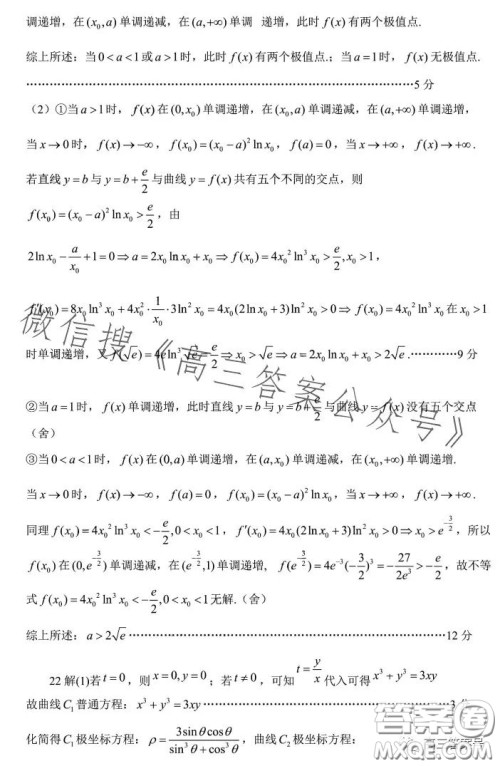 调递增，在(x₀,a)单调递减，在(a,+∞)单调 递增，此时f(x)有两个极值点.
综上所述：当0<a<1或a>1时，此时f(x)有两个极值点.；当a=1时，f(x)无极值点.
…………………………………………………………………………………5分
（2）①当a>1时，f(x)在(0,x₀)单调递增，在(x₀,a)单调递减，在(a,+∞)单调递增，
当x→0时，f(x)→-∞，f(x₀)=(x₀-a)²ln x₀，f(a)=0，当x→+∞，f(x)→+∞.
若直线y=b与y=b+e/2与曲线y=f(x)共有五个不同的交点，则
f(x₀)=(x₀-a)²ln x₀>e/2，由
2ln x₀-a/x₀+1=0⇒a=2x₀ln x₀+x₀⇒f(x₀)=4x₀²ln³x₀>e/2,x₀>1，
f′(x₀)=8x₀ln³x₀+4x₀²·1/x₀·3ln²x₀=4x₀(2ln x₀+3)ln²x₀>0⇒f(x₀)=4x₀²ln³x₀在x₀>1
时单调递增，又f(√e)=4eln³√e=e/2⇒x₀>√e⇒a=2x₀ln x₀+x₀>2√e.…………9分
②当a=1时，f(x)单调递增，此时直线y=b与y=b+e/2与曲线y=f(x)没有五个交点
（舍）
③当0<a<1时，f(x)在(0,a)单调递增，在(a,x₀)单调递减，在(x₀,+∞)单调递增.
当x→0时，f(x)→-∞，f(a)=0，f(x₀)=(x₀-a)²ln x₀，当x→+∞，f(x)→+∞.
同理f(x₀)=4x₀²ln³x₀<-e/2,0<x₀<1，f′(x₀)=4x₀(2ln x₀+3)ln²x₀>0⇒x₀>e^(-3/2)，所以
f(x₀)在(0,e^(-3/2))单调递减，在(e^(-3/2),1)单调递增，f(e^(-3/2))=4e⁻³(-3/2)³=-27/2e³>-e/2，故不等
式f(x₀)=4x₀²ln³x₀<-e/2,0<x₀<1无解.（舍）
综上所述：a>2√e…………………………………………………………12分
22解(1)若t=0，则x=0,y=0；若t≠0，可知t=y/x代入可得x³+y³=3xy
故曲线C₁普通方程：x³+y³=3xy……………………………………………3分
化简得C₁极坐标方程：ρ=3sinθcosθ/sin³θ+cos³θ，曲线C₂极坐标方程：
微信搜《高三答案公众号》
答案圈
MXQE.COM